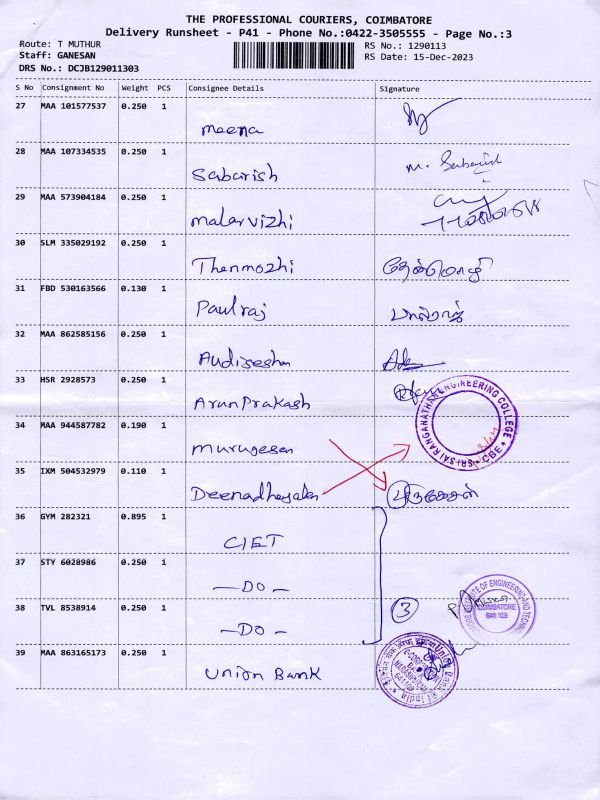 THE PROFESSIONAL COURIERS, COIMBATORE
Delivery Runsheet - P41 - Phone No.:0422-3505555 - Page No.:3
Route: T MUTHUR
RS No.: 1290113
Staff: GANESAN
RS Date: 15-Dec-2023
DRS No.: DCJB129011303
S No Consignment No Weight PCS Consignee Details Signature
27 MAA 101577537 0.250 1
Meena
28 MAA 107334535 0.250 1
Sabarish M. Sabarish
29 MAA 573904184 0.250 1
Malarvizhi
30 SLM 335029192 0.250 1
Thenmozhi தேன்மொழி
31 FBD 530163566 0.130 1
Paulraj பால்ராஜ்
32 MAA 862585156 0.250 1
Audiseshan
33 HSR 2928573 0.250 1
ArunPrakash
34 MAA 944587782 0.190 1
Murugesan
SRI SAI RANGANATHAN ENGINEERING COLLEGE * CBE *
35 IXM 504532979 0.110 1
Deenadhayalan முருகேசன்
36 GYM 282321 0.895 1
CIET
37 STY 6028986 0.250 1
—DO—
38 TVL 8538914 0.250 1
—DO— 3
COIMBATORE
641 109
39 MAA 863165173 0.250 1
Union Bank